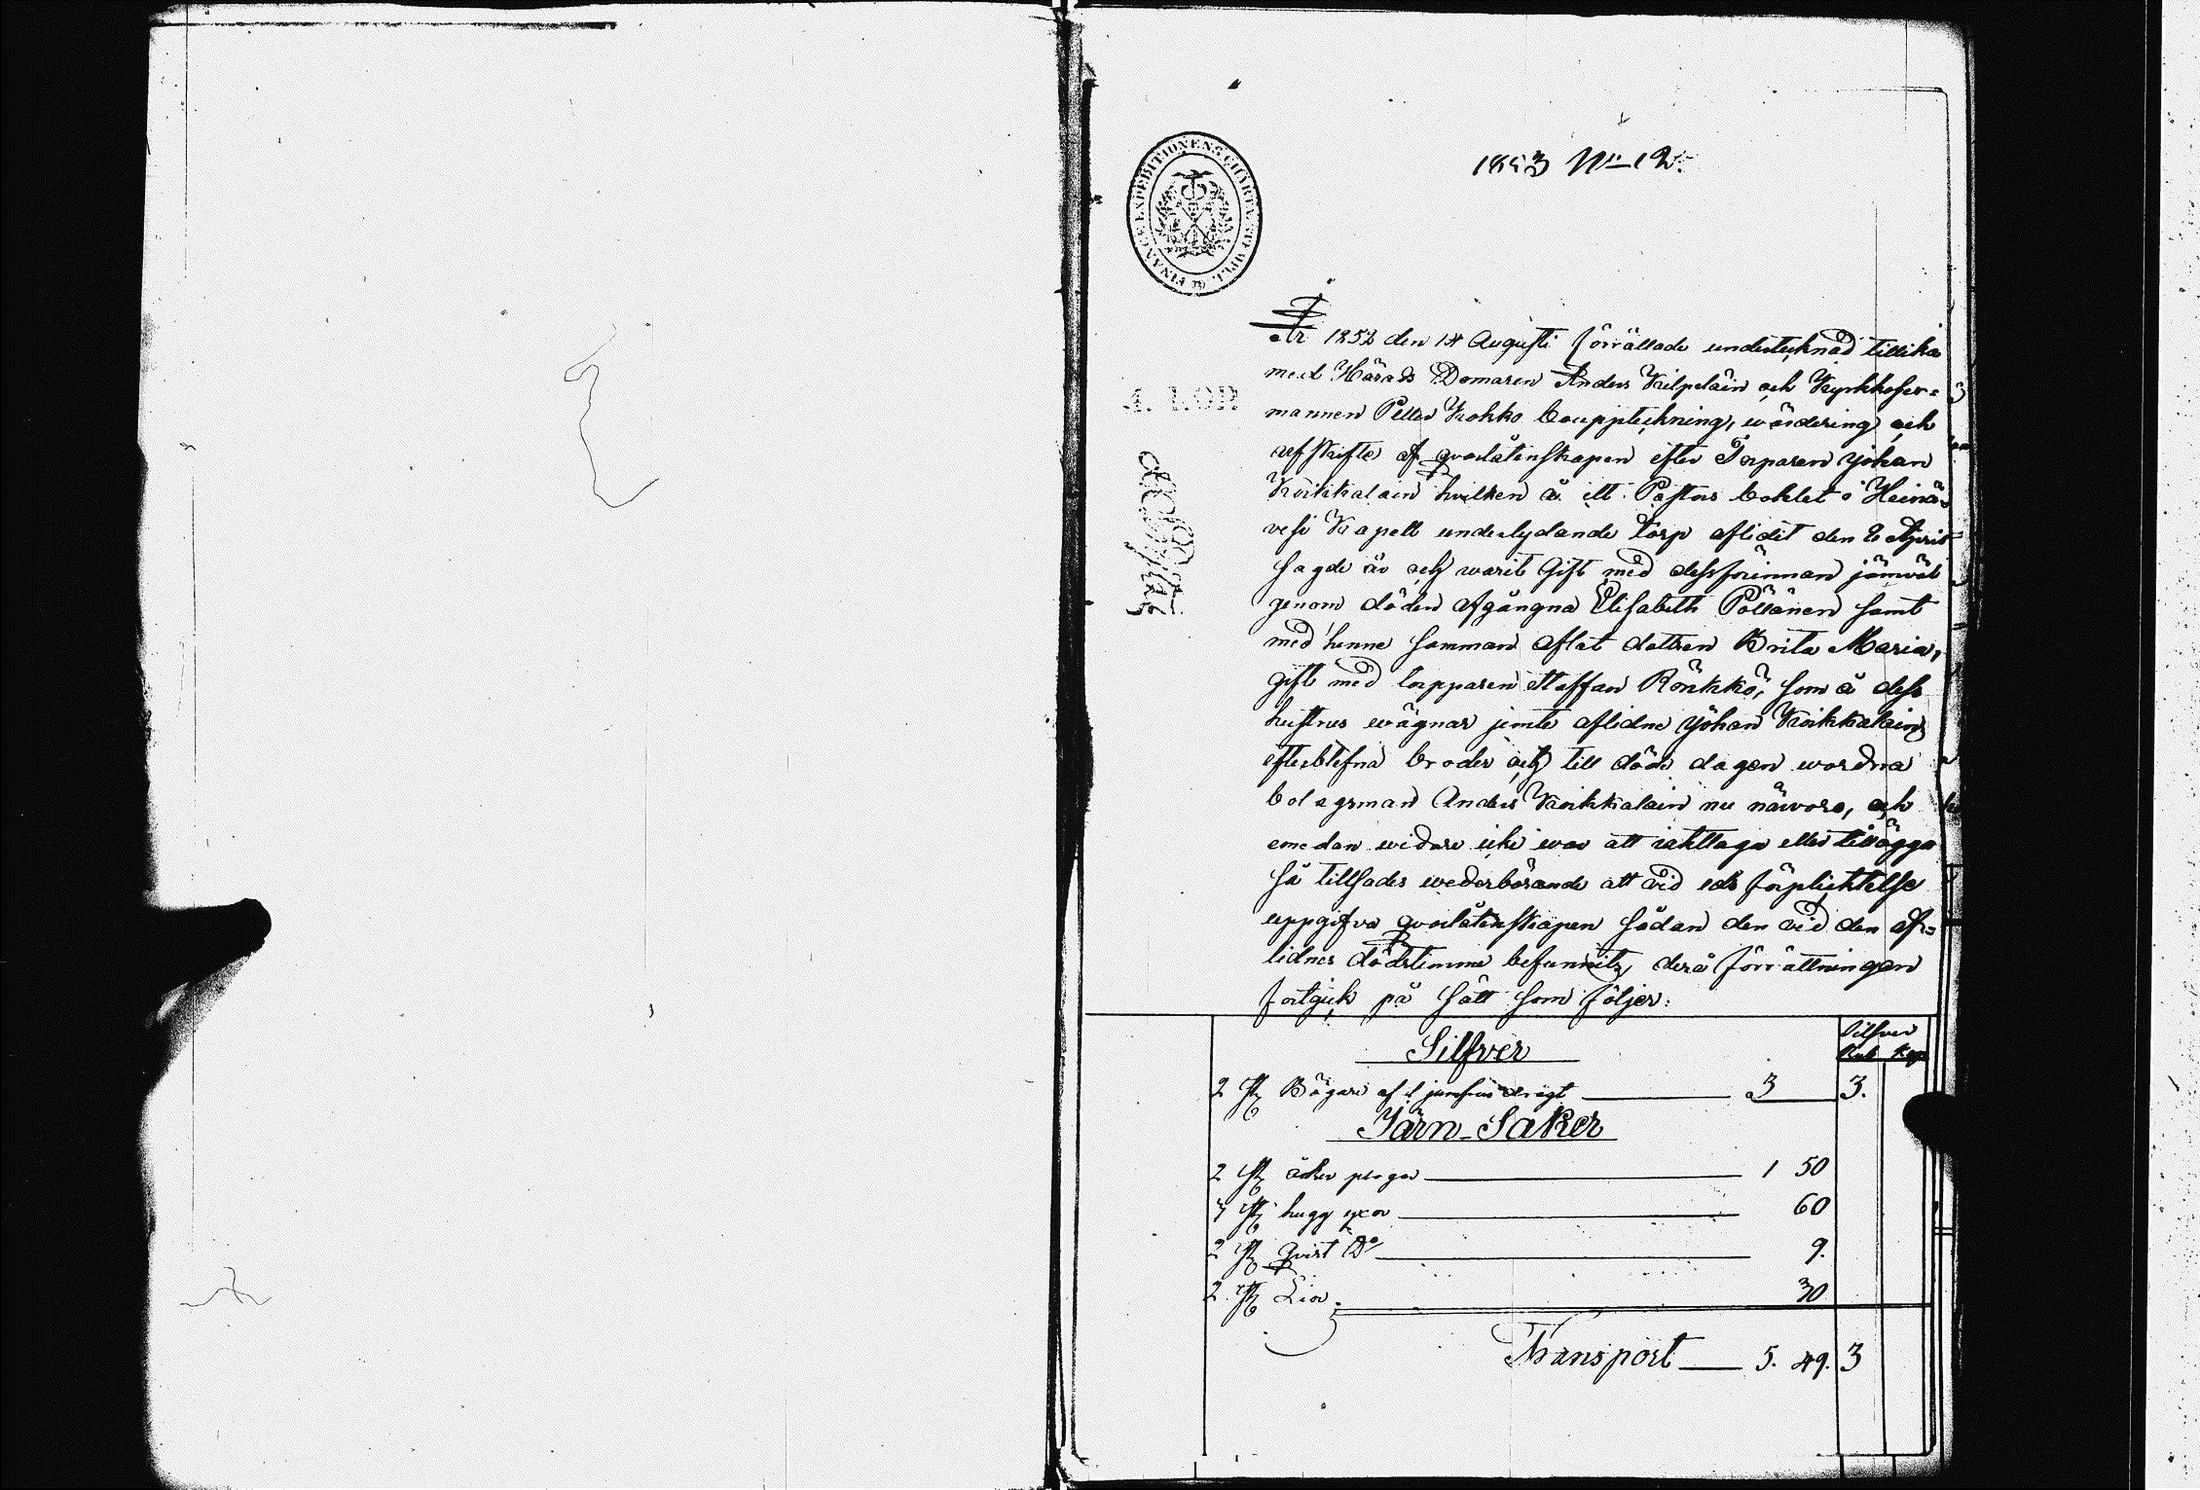 1853 No 12.
FINANCE EXPEDITIONENS CHARTÆ
År 1852 den 14 Augusti förrättade undertecknad tillika
med Härads Domaren Anders Kilpeläin och Kyrkkoster=
mannen Petter Kohko bouppteckning, wärdering och
afskrifte af qvarlåtenskapen efter Torparen Johan
Koikkalain hvilken å ett Pastors bohlet i Heinä-
vesi Kapell underlydande torp aflidit den April
sagde år och warit gift med dessförinnan jämväl
genom döden afgångna Elisabeth Pöllänen samt
med henne samman aflat dottren Brita Maria,
gift med torpparen Staffan Rönkkö, som å dess
hustrus wägnar jemte aflidne Johan Koikkalains
efterblefna broder och till döde dagen wordna
bolagsman Anders Koikkalain nu närvoro, och
emedan widare icke war att iakttaga eller tillägga
så tillsades wederbörande att vid eds förplicktelse
uppgifva qvarlåtenskapen sådan den vid den af=
lidnes dödstimme befunnits, derå förrättningen
fortgick på sätt som följer:
Silfver
Rub Kop
Silfver
2 st Bägare af 3 3.
Järn-Saker
2 st åker plogar 1 50
st hugg yxor 60
2 st qvist Do 9.
2 st Liar 30
Transport 5. 49. 3